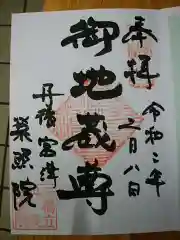 奉拝
令和二年
二月八日
御地蔵尊
丹後宮津
榮照院